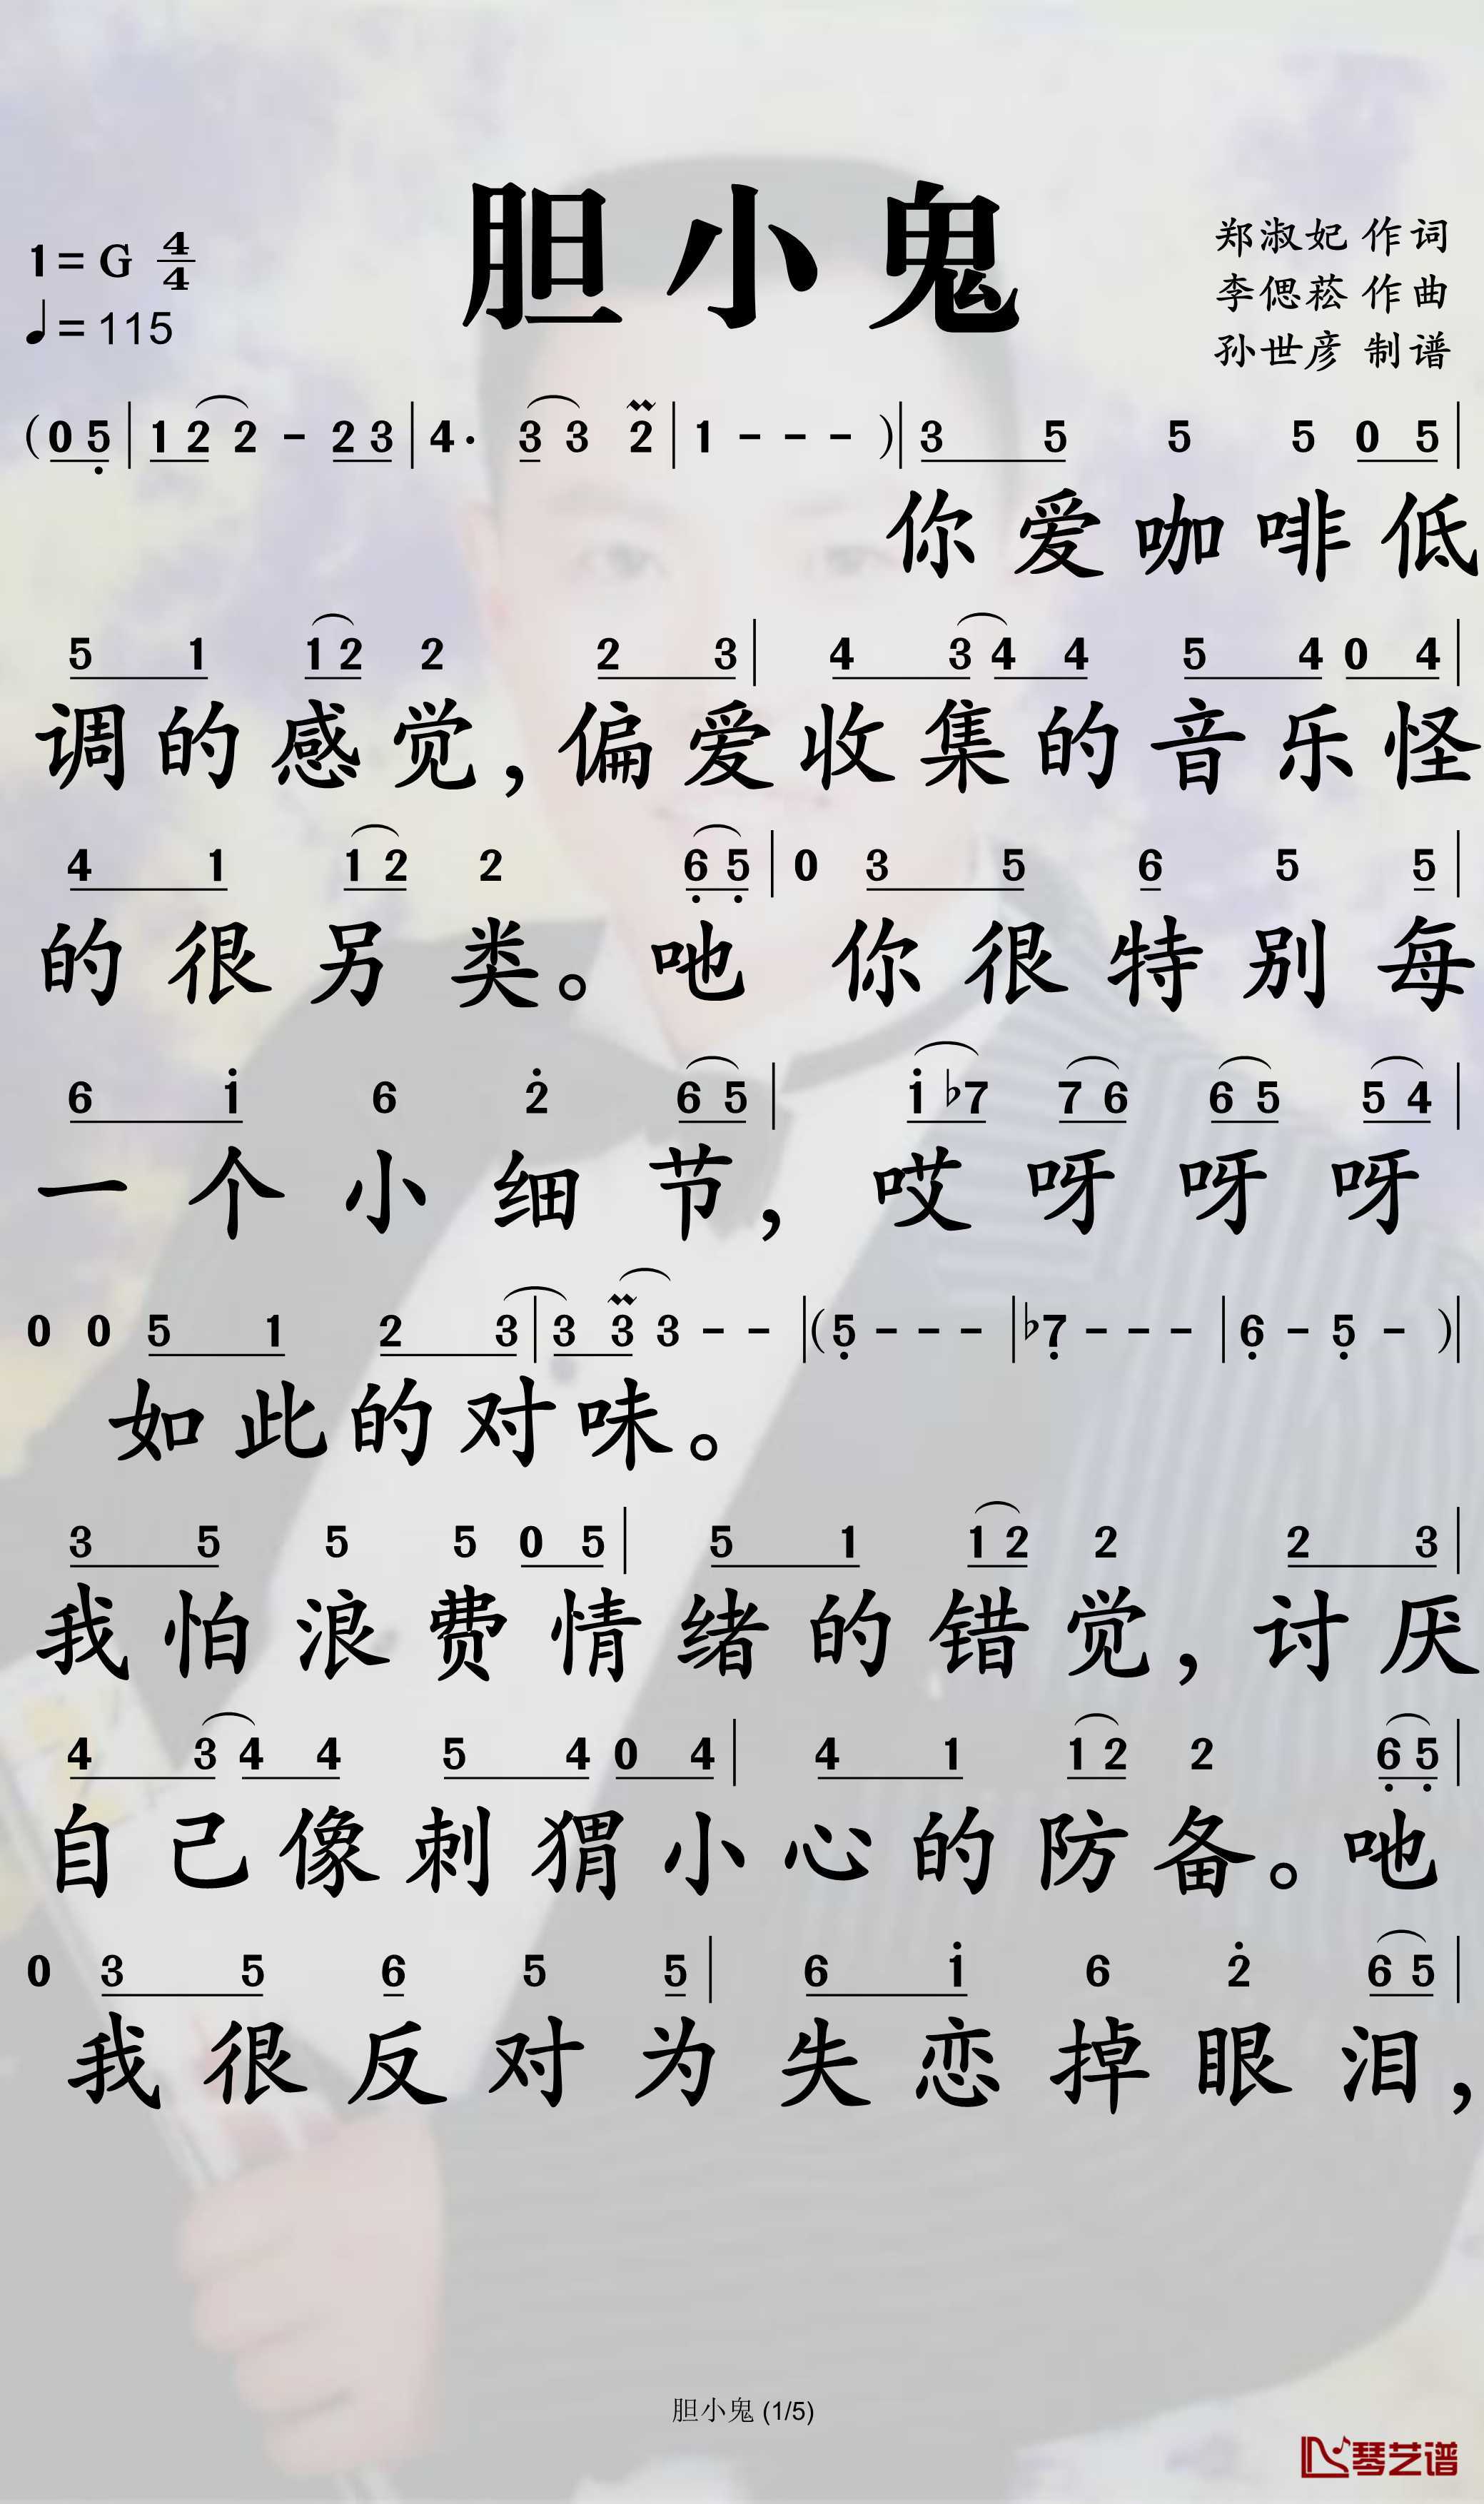 胆小鬼
1=G 4/4
♩=115
郑淑妃 作词
李偲菘 作曲
孙世彦 制谱
(0 5 | 1 2 2 - 2 3 | 4· 3 3 2 | 1 - - - )| 3 5 5 5 0 5 |
你爱咖啡低
5 1 1 2 2 2 3 | 4 3 4 4 5 4 0 4 |
调的感觉，偏爱收集的音乐怪
4 1 1 2 2 6 5 | 0 3 5 6 5 5 |
的很另类。吔 你很特别每
6 1 6 2 6 5 | 1 ♭7 7 6 6 5 5 4 |
一个小细节，哎呀呀呀
0 0 5 1 2 3 | 3 3 3 - - |(5 - - - |♭7 - - - | 6 - 5 - )|
如此的对味。
3 5 5 5 0 5 | 5 1 1 2 2 2 3 |
我怕浪费情绪的错觉，讨厌
4 3 4 4 5 4 0 4 | 4 1 1 2 2 6 5 |
自己像刺猬小心的防备。吔
0 3 5 6 5 5 | 6 1 6 2 6 5 |
我很反对为失恋掉眼泪，
胆小鬼 (1/5)
琴艺谱